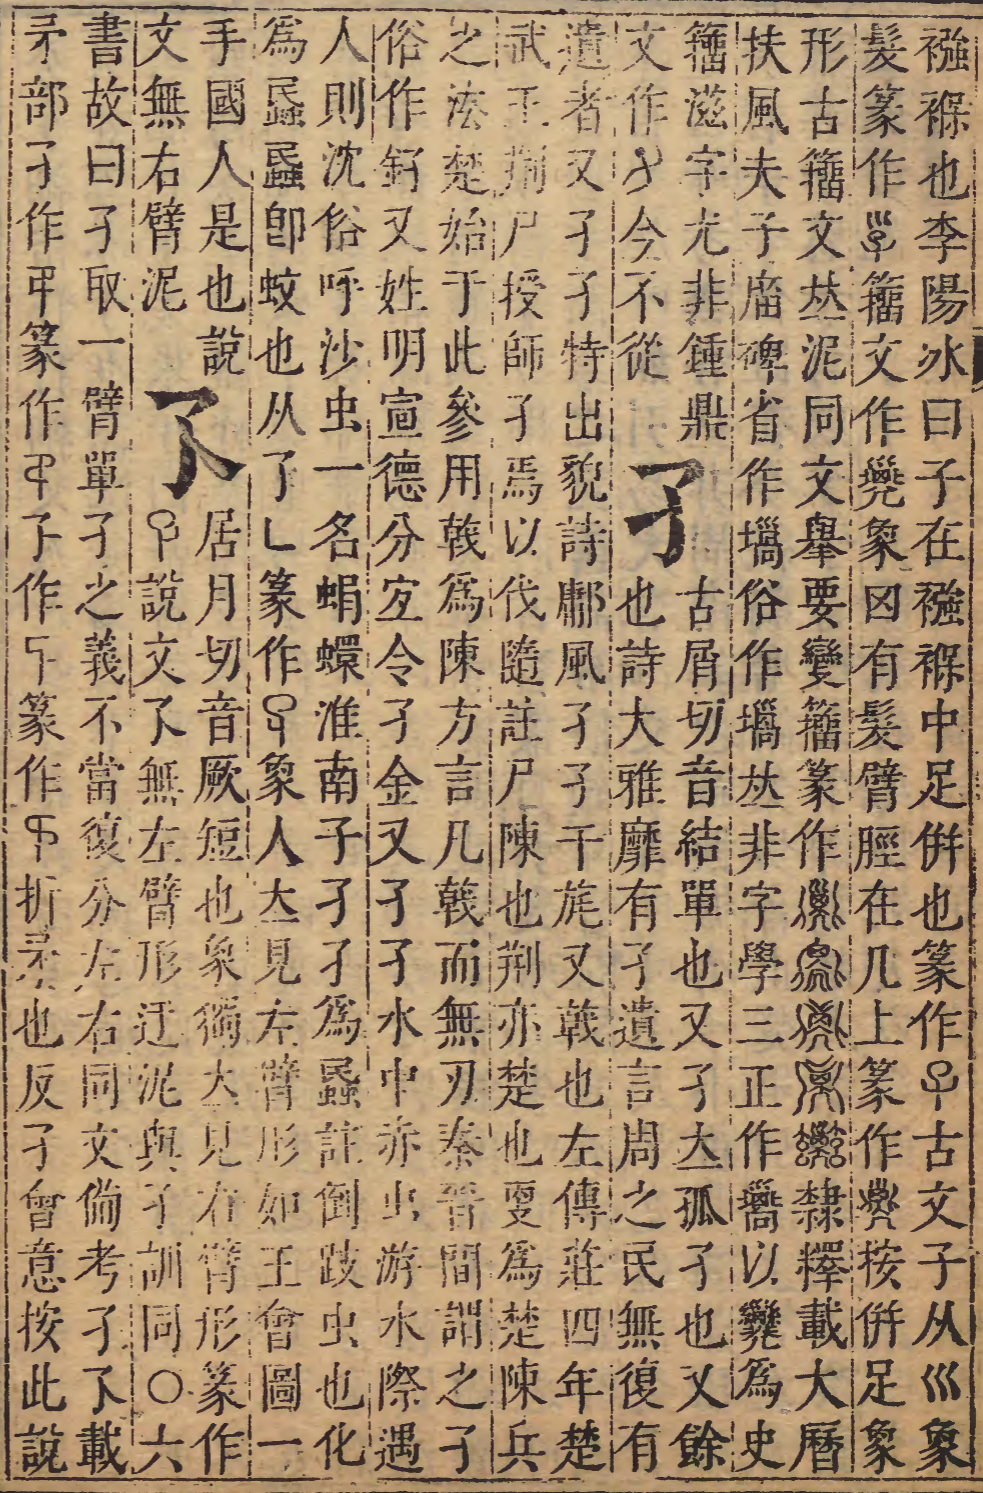 襁褓也李陽冰曰子在襁褓中足併也篆作古文子从巛象
髮篆作籀文作㜽象囟有髮臂脛在几上篆作按併足象
形古籀文𠀤泥同文舉要變籀篆作隸釋載大曆
扶風夫子廟碑省作壪俗作壪𠀤非字學三正作以㜽爲史
籀滋字尤非鍾鼎
孑
古屑切音結單也又孑𠀤孤孑也又餘
也詩大雅靡有孑遺言周之民無復有
文作今不從
遺者又孑孑特出貌詩鄘風孑孑干旄又戟也左傳莊四年楚
武王荆尸授師孑焉以伐隨註尸陳也荆亦楚也更爲楚陳兵
之法楚始于此參用戟爲陳方言凡戟而無刃秦晉間謂之孑
俗作釨又姓明宣德分宜令孑金又孑孑水中赤虫游水際遇
人則沈俗呼沙虫一名蜎蠉淮南子孑孑爲蟁註倒跂虫也化
爲蟁蟁卽蚊也从了乚篆作象人𠀤見左臂形如王會圖一
手國人是也說
文無右臂泥
孓
居月切音厥短也象獨大見右臂形篆作
說文孓無左臂形迂泥與孑訓同○六
書故曰孑取一臂單孑之義不當復分左右同文備考孑孓載
矛部孑作篆作孓作篆作折矛也反孑會意按此說